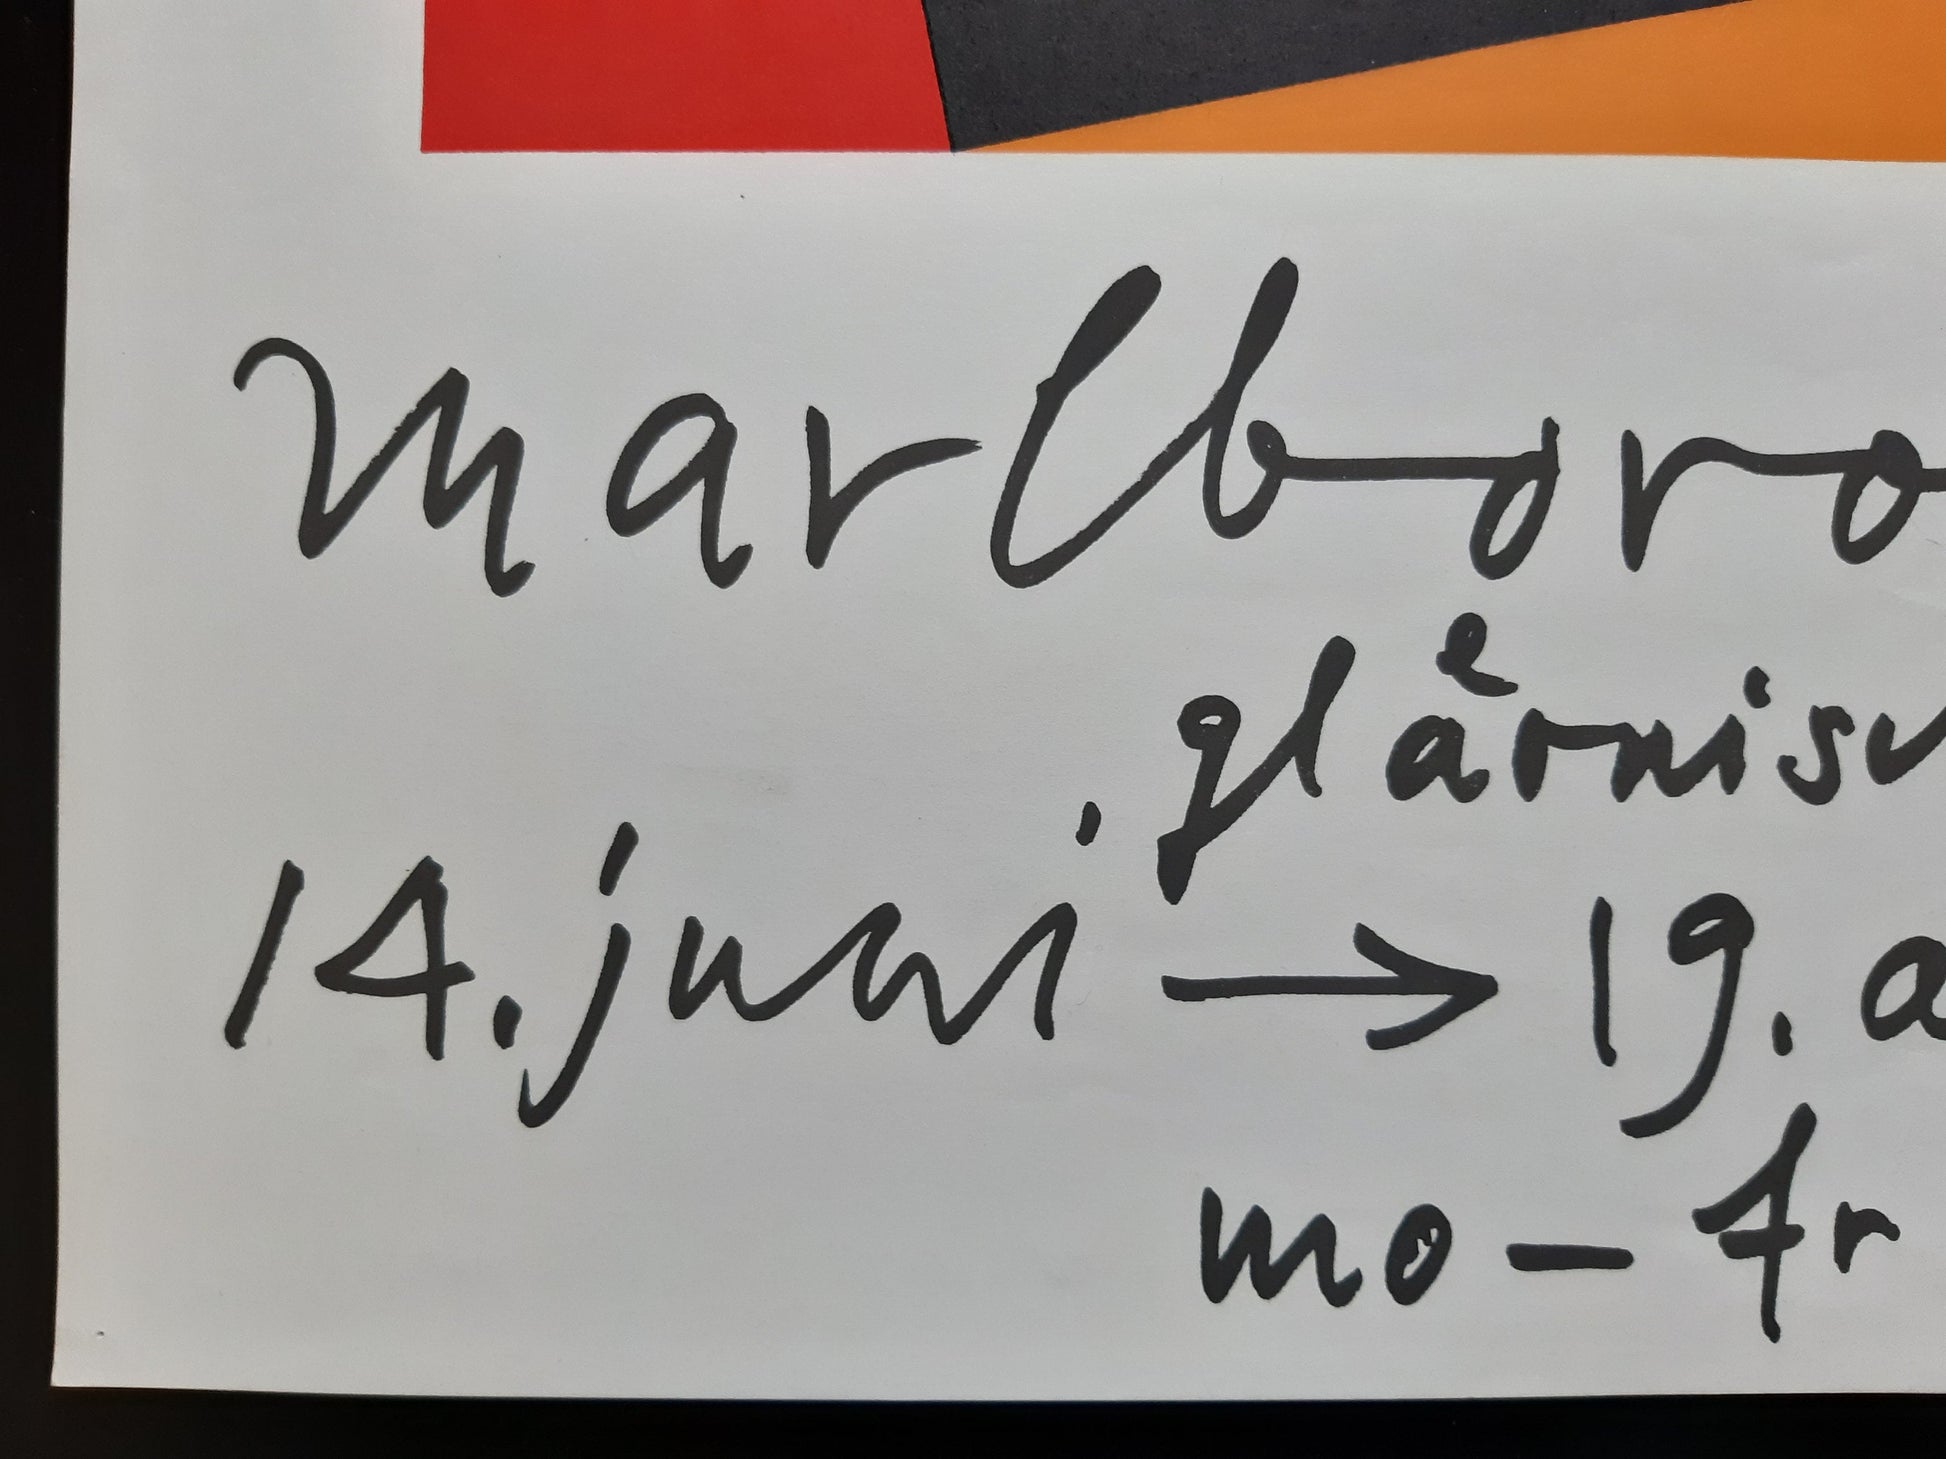 marlboro
glärnisc
14. juni → 19. a
mo – fr